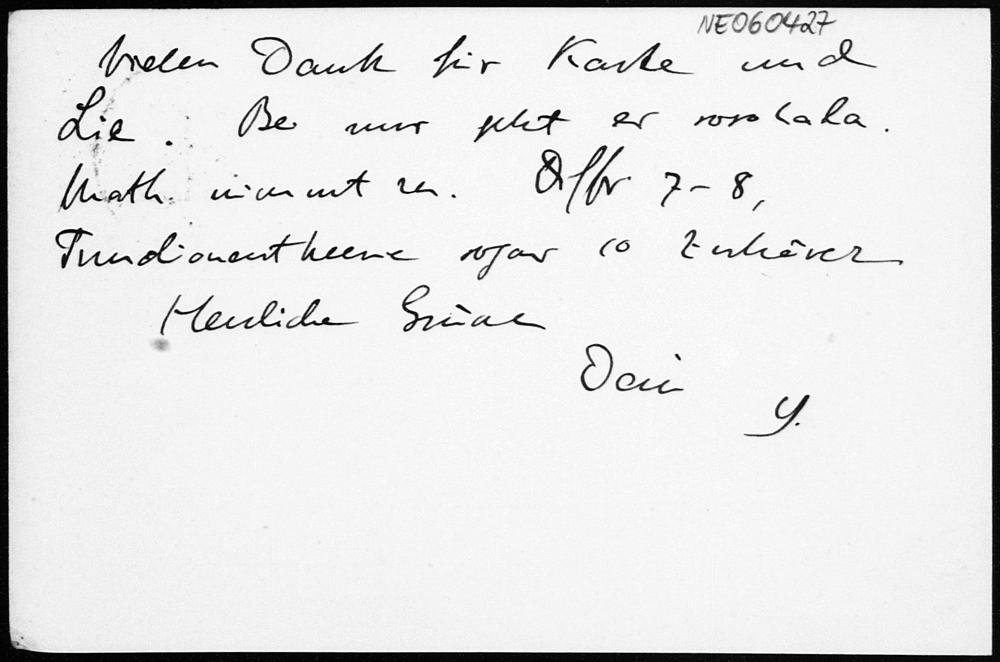 NE060427
Vielen Dank für Karte und
Lie. Bei mir geht es sosolala.
Math. nimmt zu. Diffbr 7-8,
Funktionentheorie sogar 10 Zuhörer
Herzliche Grüsse
Dein
Y.